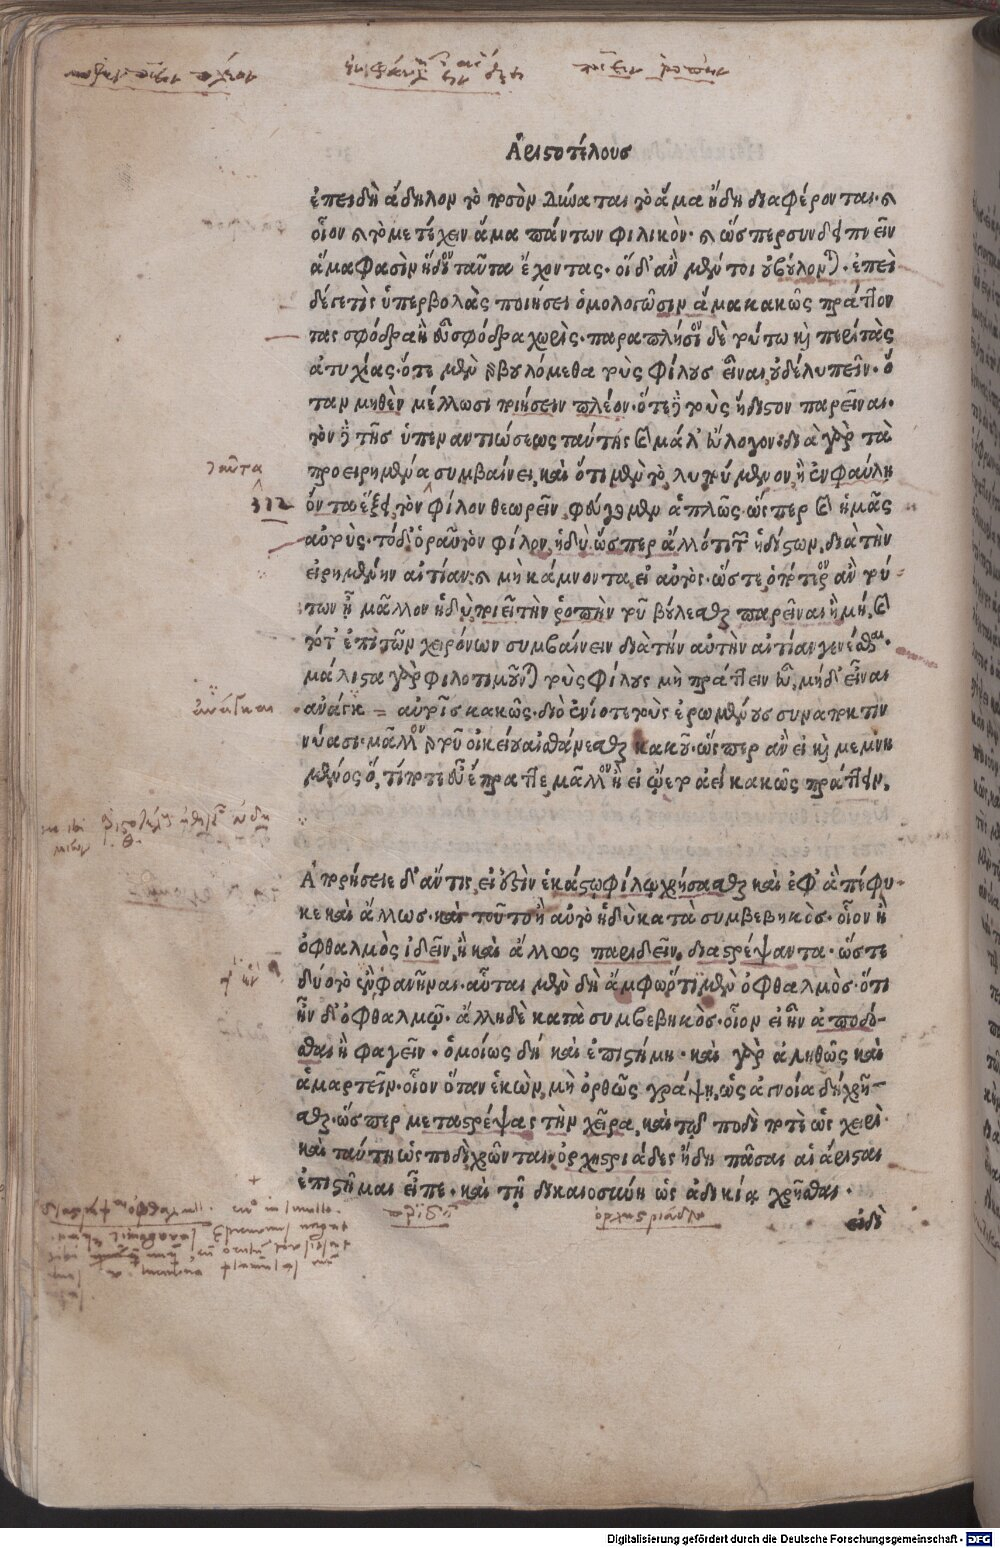 Ἀριστοτέλους
ἐπειδὴ ἄδηλον τὸ πόσον δύναται τὸ ἅμα ἤδη διαφέρονται. καὶ
οἷον καὶ τὸ μετέχειν ἅμα πάντων φιλικόν. καὶ ὥσπερ συνδειπνεῖν
ἅμα φασὶν ἥδιον ταῦτα ἔχοντας. οἱ δ' ἂν μέντοι οὐ βούλονται. ἐπεὶ
δέ γε τὶς ὑπερβολὰς ποιήσει ὁμολογῶσιν ἅμα κακῶς πράττον
τας σφόδρα ἢ εὖ σφόδρα χωρίς. παραπλήσιον δὲ τούτῳ καὶ περὶ τὰς
ἀτυχίας. ὁτὲ μὲν γὰρ βουλόμεθα τοὺς φίλους εἶναι, οὐδὲ λυπεῖν. ὅ
ταν μηθὲν μέλλωσι ποιήσειν πλέον. ὁτὲ δὲ τοὺς ἥδιστον παρεῖναι.
τὸν δὲ τῆς ὑπεραντιώσεως ταύτης καὶ μάλ' εὔλογον. διὰ γὰρ τὰ
προειρημένα συμβαίνει, καὶ ὅτι μὲν τὸ λυπούμενον, ἢ ἐν φαύλῃ
ὄντα ἕξει τὸν φίλον θεωρεῖν, φεύγομεν ἁπλῶς. ὥσπερ καὶ ἡμᾶς
αὐτούς. τὸ δ' ὁρᾶν τὸν φίλον, ἡδὺ ὥσπερ ἄλλο τι τῶν ἡδίστων, διὰ τὴν
εἰρημένην αἰτίαν. καὶ μὴ κάμνοντα, εἰ αὐτός. ὥστε ὁπότερον ἂν τού
των ᾖ μᾶλλον ἡδὺ, ποιεῖ τὴν ῥοπὴν τοῦ βούλεσθαι παρεῖναι ἢ μή, καὶ
τότ' ἐπὶ τῶν χειρόνων συμβαίνειν διὰ τὴν αὐτὴν αἰτίαν γενέσθαι.
μάλιστα γὰρ φιλοτιμοῦνται τοὺς φίλους μὴ πράττειν εὖ, μήδ' εἶναι
ἀνάγκ = αὐτοῖς κακῶς. διὸ ἐνίοτε τοὺς ἐρωμένους συναποκτιν
νύασι. μᾶλλον γὰρ τοῦ οἰκείου αἰσθάνεσθαι κακοῦ. ὥσπερ ἂν εἰ καὶ μεμνη
μένος ὅ, τί ποτε εὖ ἔπραττε μᾶλλον ἢ εἰ ᾤετο ἀεὶ κακῶς πράττειν.
Ἀπορήσειε δ' ἄν τις, εἰ οὖσιν ἑκάστῳ φίλῳ χρήσασθαι καὶ ἐφ' ἃ πέφυ
κε καὶ ἄλλως. καὶ τοῦτο ἢ αὐτὸ ἡδὺ κατὰ συμβεβηκός. οἷον ἢ
ὀφθαλμὸς ἰδεῖν, ἢ καὶ ἄλλως παριδεῖν, διαστρέψαντα. ὥστε
δύο τὸ ἓν φανῆναι. αὗται μὲν δὴ ἄμφω, ὅτι μὲν ὀφθαλμός. ὅτι
ἦν δ' ὀφθαλμῷ. ἄλλη δὲ κατὰ συμβεβηκός. οἷον εἰ ἦν ἀποδό-
σθαι ἢ φαγεῖν. ὁμοίως δὴ καὶ ἐπιστήμη. καὶ γὰρ ἀληθῶς καὶ
ἁμαρτεῖν. οἷον ὅταν ἑκὼν, μὴ ὀρθῶς γράψῃ, ὡς ἀγνοίᾳ δὴ χρῆ-
σθαι. ὥσπερ μεταστρέψας τὴν χεῖρα, καὶ τῷ ποδὶ ποτὲ ὡς χειρὶ.
καὶ ταύτῃ ὡς ποδὶ χρῶνται ὀρχηστριάδες ἤδη πᾶσαι αἱ ἄρισται
ἐπιστῆμαι εἶπε. καὶ τῇ δικαιοσύνῃ ὡς ἀδικίᾳ χρῆσθαι.
εἰδὲ
ταῦτα
312
ἀνάγκαι
ὀρχηστριάδες
Digitalisierung gefördert durch die Deutsche Forschungsgemeinschaft - DFG